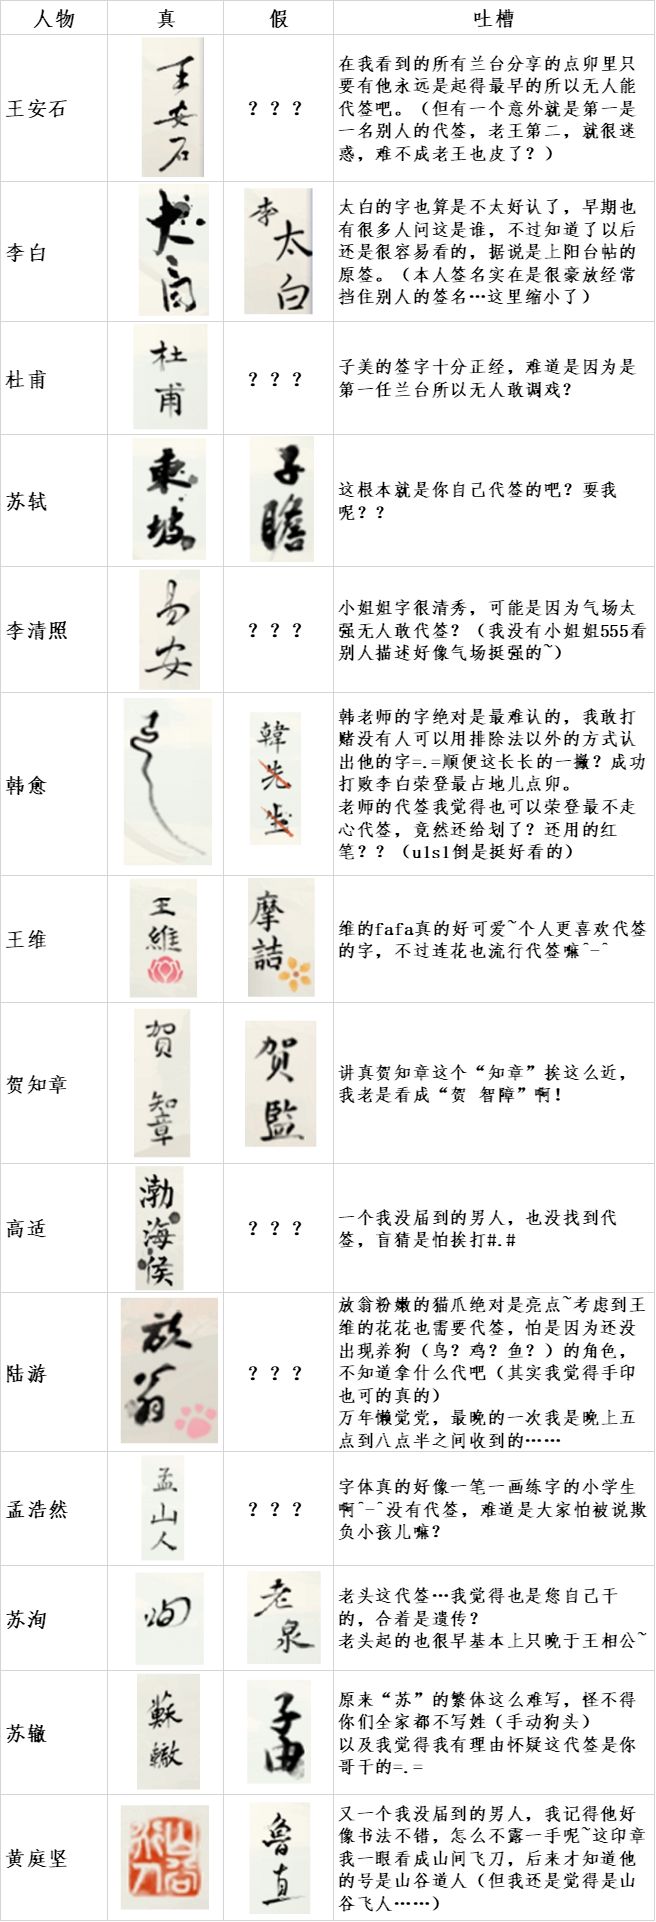 人物 真 假 吐槽
王安石
王安石
？？？
在我看到的所有兰台分享的点卯里只
要有他永远是起得最早的所以无人能
代签吧。（但有一个意外就是第一是
一名别人的代签，老王第二，就很迷
惑，难不成老王也皮了？）
李白
太白
李太白
太白的字也算是不太好认了，早期也
有很多人问这是谁，不过知道了以后
还是很容易看的，据说是上阳台帖的
原签。（本人签名实在是很豪放经常
挡住别人的签名…这里缩小了）
杜甫
杜甫
？？？
子美的签字十分正经，难道是因为是
第一任兰台所以无人敢调戏？
苏轼
東坡
子瞻
这根本就是你自己代签的吧？要我
呢？？
李清照
易安
？？？
小姐姐字很清秀，可能是因为气场太
强无人敢代签？（我没有小姐姐555看
别人描述好像气场挺强的~）
韩愈
韓先生
韩老师的字绝对是最难认的，我敢打
赌没有人可以用排除法以外的方式认
出他的字=.=顺便这长长的一撇？成功
打败李白荣登最占地儿点卯。
老师的代签我觉得也可以荣登最不走
心代签，竟然还给划了？还用的红
笔？？（u1s1倒是挺好看的）
王维
王維
摩詰
维的fafa真的好可爱~个人更喜欢代签
的字，不过连花也流行代签嘛^-^
贺知章
贺知章
贺監
讲真贺知章这个“知章”挨这么近，
我老是看成“贺 智障”啊！
高适
渤海侯
？？？
一个我没届到的男人，也没找到代
签，盲猜是怕挨打#.#
陆游
放翁
？？？
放翁粉嫩的猫爪绝对是亮点~考虑到王
维的花花也需要代签，怕是因为还没
出现养狗（鸟？鸡？鱼？）的角色，
不知道拿什么代吧（其实我觉得手印
也可的真的）
万年懒觉党，最晚的一次我是晚上五
点到八点半之间收到的……
孟浩然
孟山人
？？？
字体真的好像一笔一画练字的小学生
啊^-^没有代签，难道是大家怕被说欺
负小孩儿嘛？
苏洵
洵
老泉
老头这代签…我觉得也是您自己干
的，合着是遗传？
老头起的也很早基本上只晚于王相公~
苏辙
蘇轍
子由
原来“苏”的繁体这么难写，怪不得
你们全家都不写姓（手动狗头）
以及我觉得我有理由怀疑这代签是你
哥干的=.=
黄庭坚
魯直
又一个我没届到的男人，我记得他好
像书法不错，怎么不露一手呢~这印章
我一眼看成山间飞刀，后来才知道他
的号是山谷道人（但我还是觉得是山
谷飞人……）